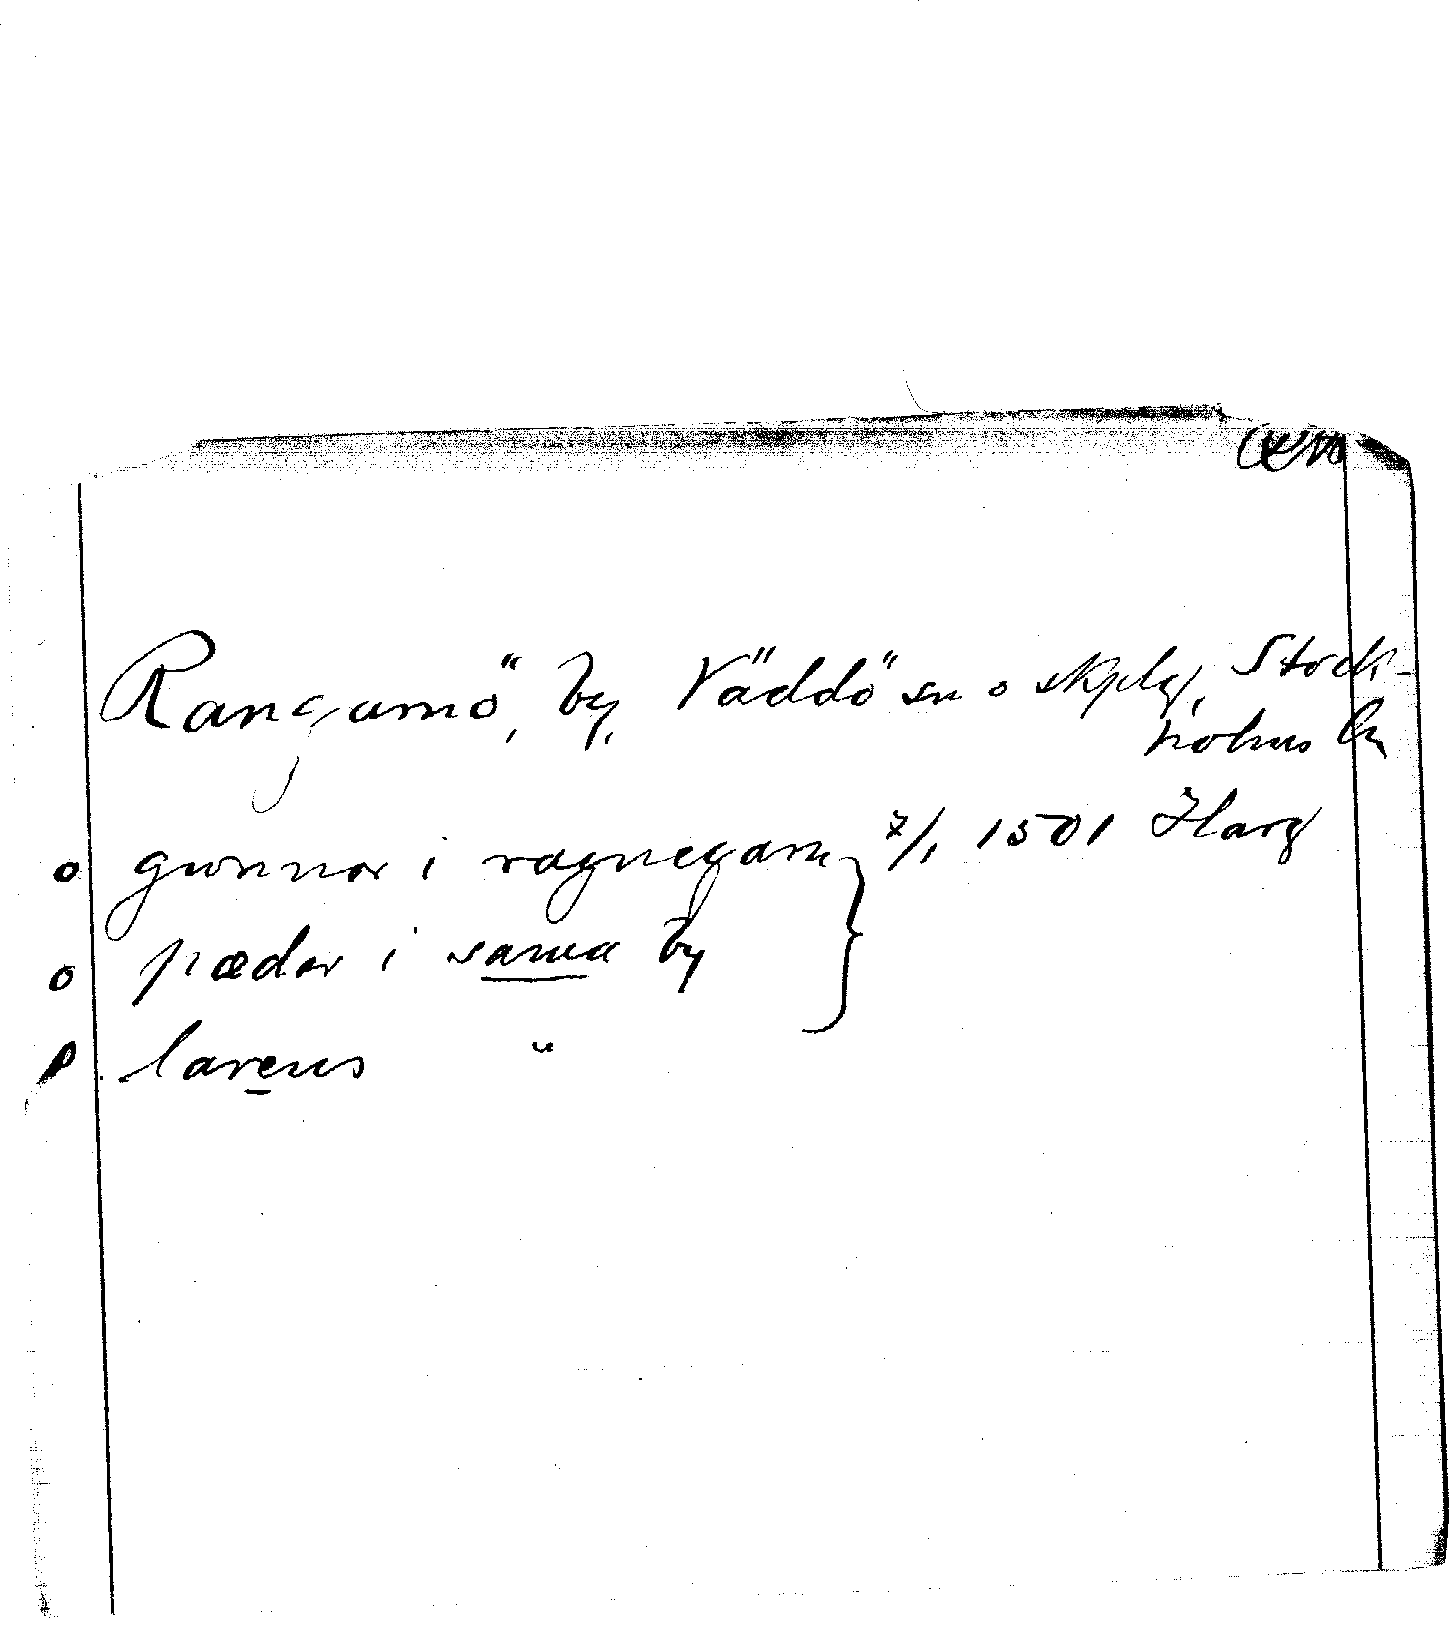 Rangarnö, by, Väddö sn o skplg, Stock-
holms ln
o gunnar i ragnegarn } 7/1 1501 Harg
o pæder i sama by
o larens "